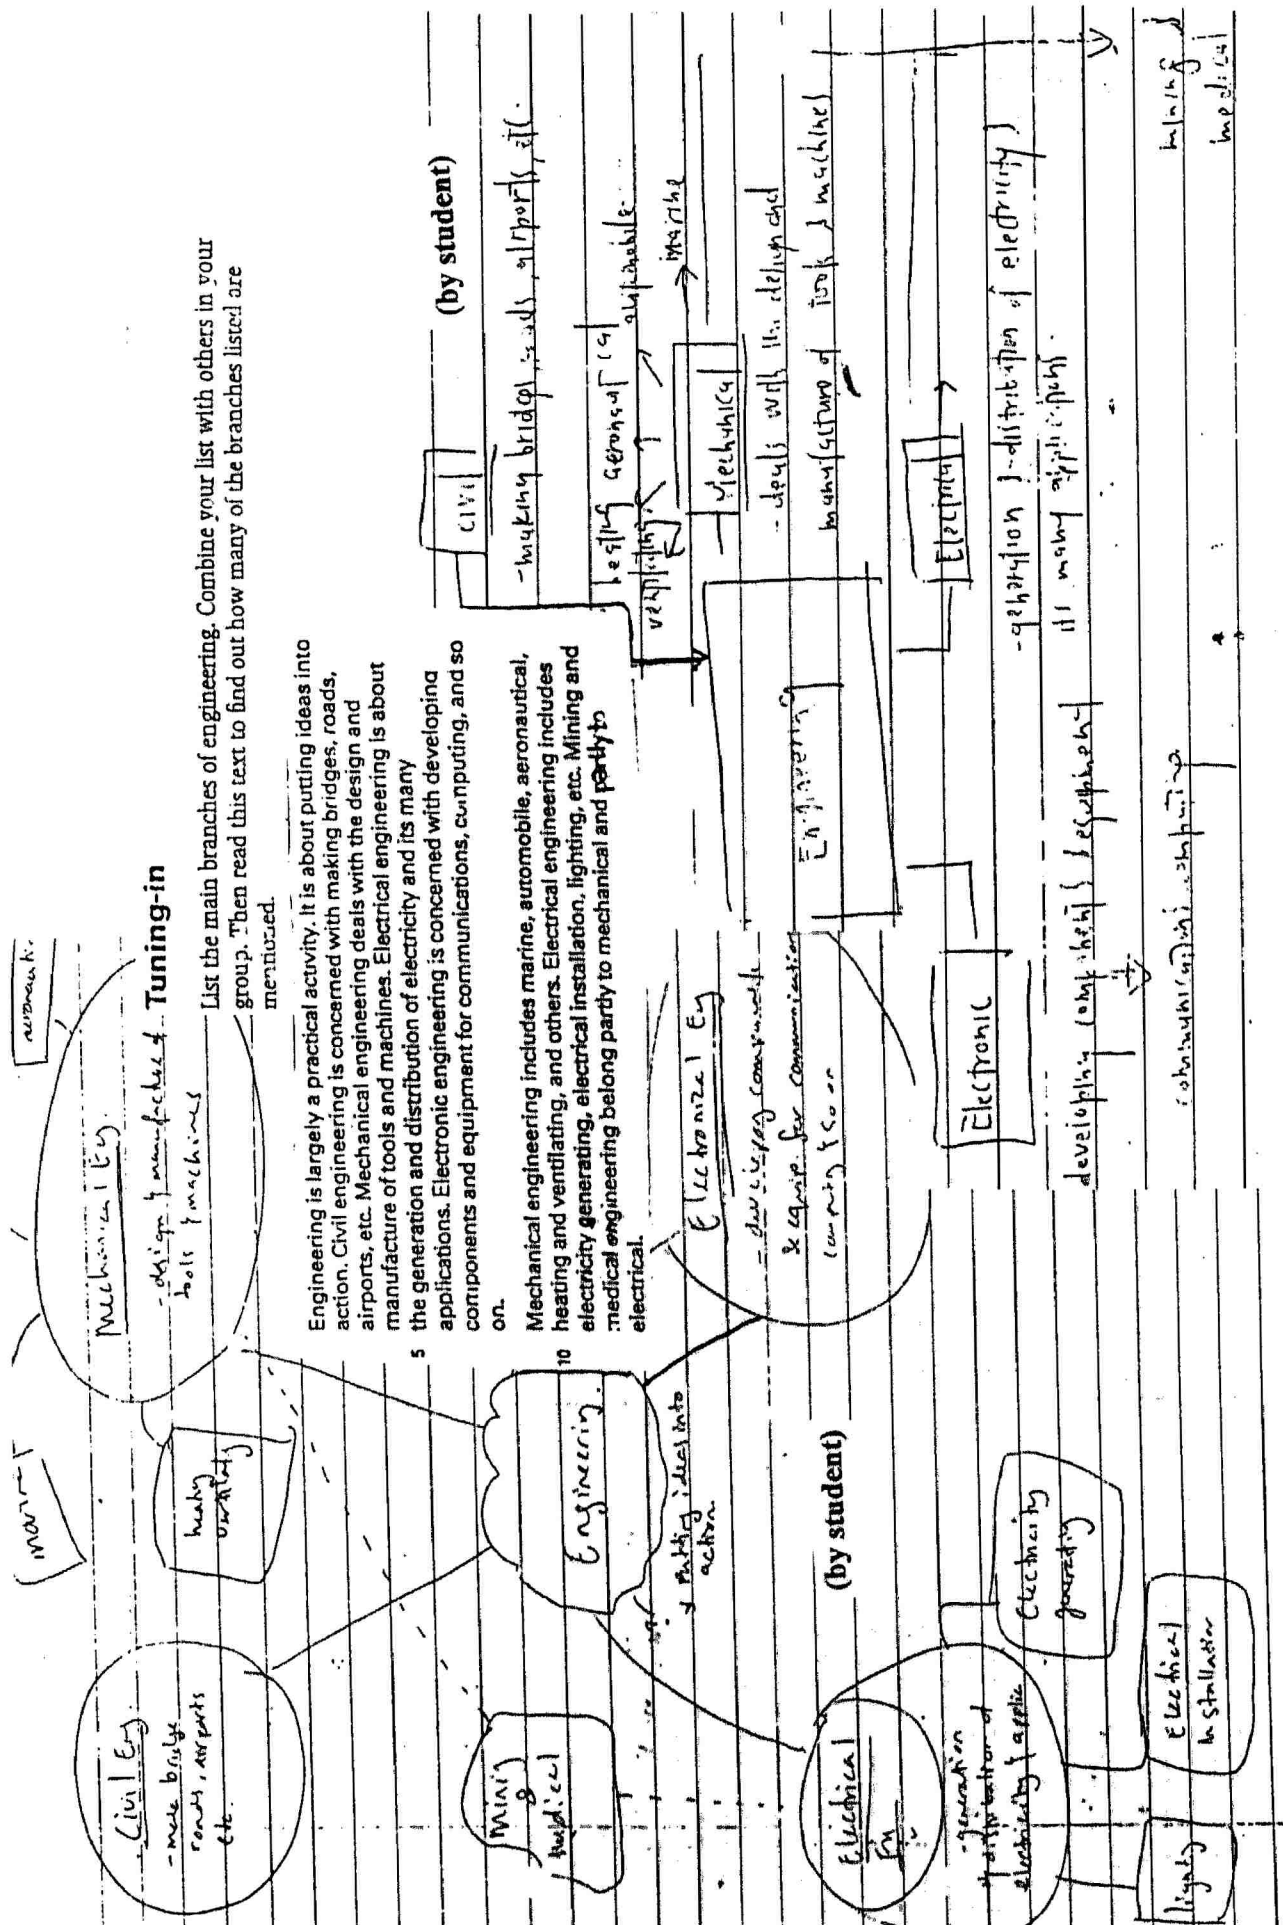 Tuning-in
List the main branches of engineering. Combine your list with others in your
group. Then read this text to find out how many of the branches listed are
mentioned.
Engineering is largely a practical activity. It is about putting ideas into
action. Civil engineering is concerned with making bridges, roads,
airports, etc. Mechanical engineering deals with the design and
manufacture of tools and machines. Electrical engineering is about
5 the generation and distribution of electricity and its many
applications. Electronic engineering is concerned with developing
components and equipment for communications, computing, and so
on.
Mechanical engineering includes marine, automobile, aeronautical,
10 heating and ventilating, and others. Electrical engineering includes
electricity generating, electrical installation, lighting, etc. Mining and
medical engineering belong partly to mechanical and partly to
electrical.
Mechanical Eng.
- design & manufacture of
tools & machines
heating
ventilating
Civil Eng.
- make bridge
roads, airports
etc.
Engineering
putting ideas into
action
Mining
&
Medical
Electrical
Eng
- generation
& distribution of
electricity & applic
Electricity
generating
Electrical
Installation
lighty
Electronical Eng
& equip. for communication
(by student)
(by student)
CIVIL
- making bridges, roads, airports, etc.
heating
ventilating
aeronautical
automobile
marine
Mechanical
- deals with the design and
manufacture of tools & machines
Engineering
Electrical
- generation & distribution of electricity
many applications.
Electronic
developing components & equipment
communications computing
mining &
medical